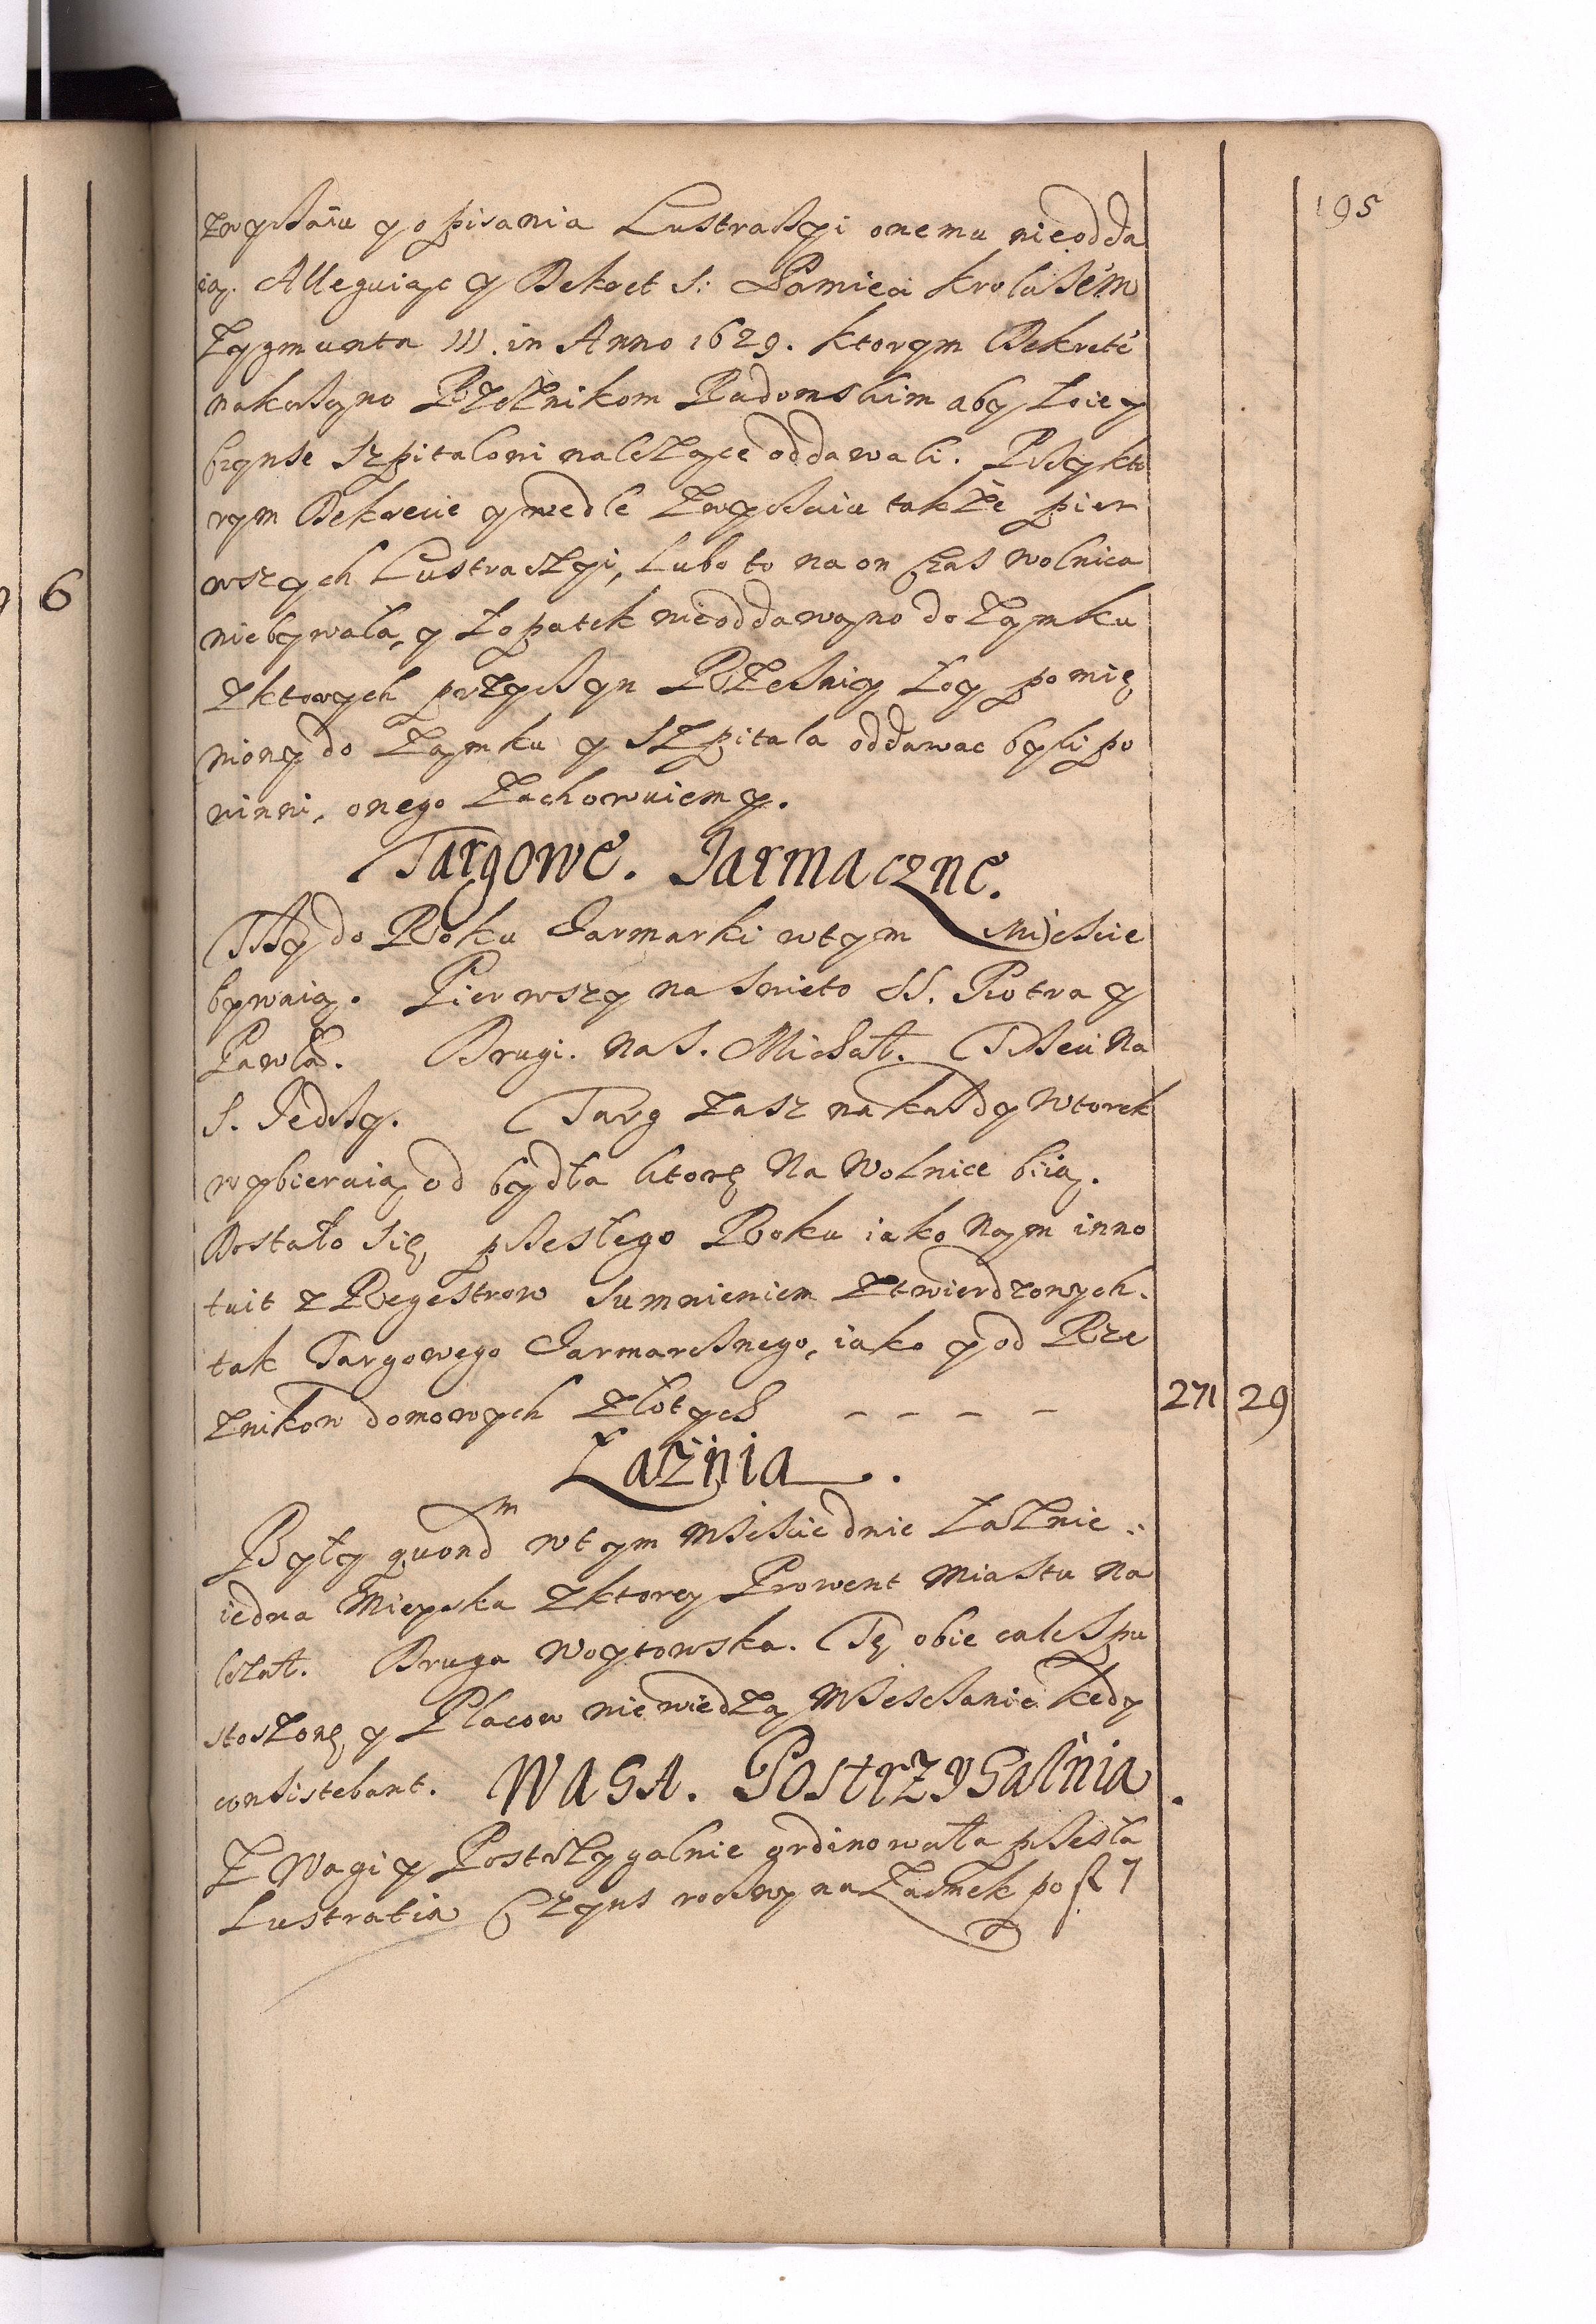 195
zwyczaiu y opisania Lustraczyi onemu nieodda
ią. Alleguiąc y Dekret S. Pamięci Krola Jem
Zygmunta III. in Anno 1629. ktorym Dekrete
nakazano Rzeznikom Radomskim aby Łoie y
czynsze Szpitalowi należące oddawali. Przy kto
rym Dekrecie y wedle zwyczaiu także pier
wszych Lustraczyi, Lubo to na on czas wolnica
niebywała, y Łopatek nieoddawano do Zamku
z ktorych przyczyn Rzeźnicy Łoy pomie
niony do Zamku y Szpitala oddawac byli po
winni, onego zachowuiemy.
Targowe. Jarmaczne.
Trzy do Roku Jarmarki w tym Mieście
bywaią. Pierwszy na Swięto SS. Piotra y
Pawła. Drugi. na S. Michał. Trzeci na
S. Jedrzy. Targ zasz na każdy wtorek
wybieraią od bydła ktore na Wolnice biią.
Dostało się przeszłego Roku iako nam inno
tuit z Regestrow sumnieniem ztwierdzonych.
tak Targowego Jarmarcznego, iako y od Rze
znikow domowych złotych - - - - 271 29
Łaźnia.
Były quondm w tym Mieście dwie Łaźnie:
iedna Mieyska z ktorey Prowent Miastu na
leżał. Druga Woytowska. Te obie cale spu
stoszone y Placow niewiedzą Mieszczanie kędy
consistebant. WAGA. Postrzygalnia.
Z Wagi y Postrzygalnie ordinowała przeszła
Lustratia Czyns roczny na Zamek po fl 7
6